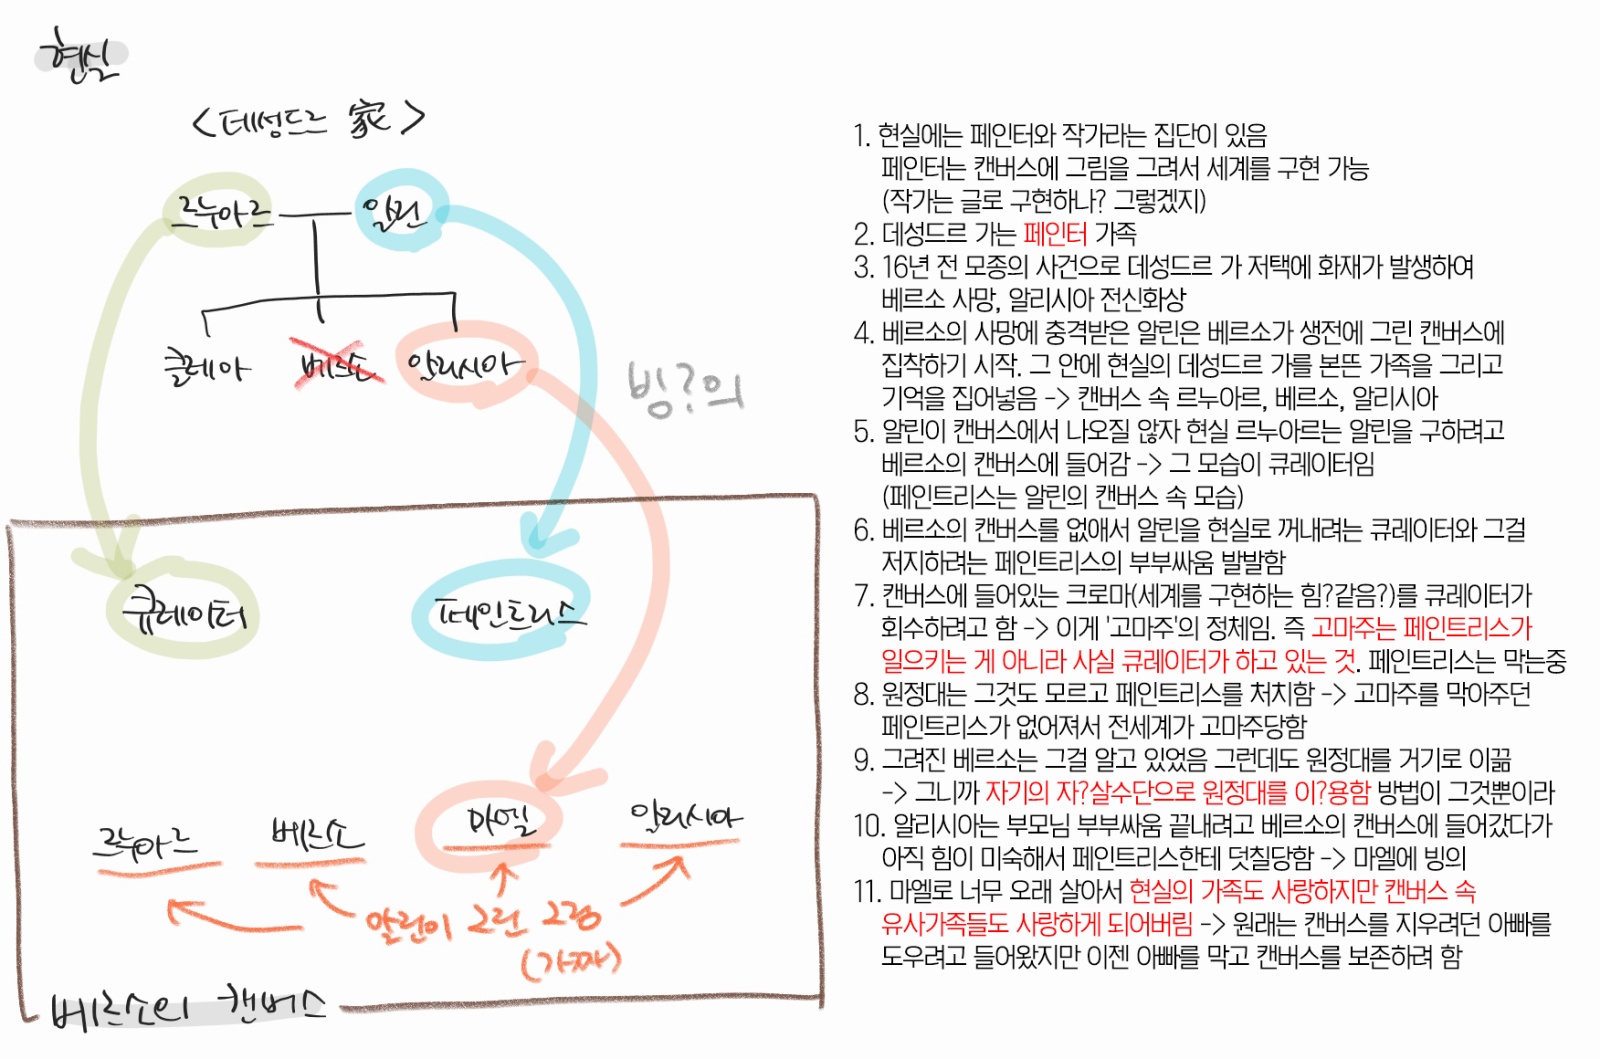 현실
<테성드르 家>
르누아르
알린
클레아
베르소
알리시아
빙?의
큐레이터
페인트리스
르누아르
베르소
마엘
알리시아
알린이 그린 그림
(가짜)
베르소의 캔버스
1. 현실에는 페인터와 작가라는 집단이 있음
페인터는 캔버스에 그림을 그려서 세계를 구현 가능
(작가는 글로 구현하나? 그렇겠지)
2. 데성드르 가는 페인터 가족
3. 16년 전 모종의 사건으로 데성드르 가 저택에 화재가 발생하여
베르소 사망, 알리시아 전신화상
4. 베르소의 사망에 충격받은 알린은 베르소가 생전에 그린 캔버스에
집착하기 시작. 그 안에 현실의 데성드르 가를 본뜬 가족을 그리고
기억을 집어넣음 -> 캔버스 속 르누아르, 베르소, 알리시아
5. 알린이 캔버스에서 나오질 않자 현실 르누아르는 알린을 구하려고
베르소의 캔버스에 들어감 -> 그 모습이 큐레이터임
(페인트리스는 알린의 캔버스 속 모습)
6. 베르소의 캔버스를 없애서 알린을 현실로 꺼내려는 큐레이터와 그걸
저지하려는 페인트리스의 부부싸움 발발함
7. 캔버스에 들어있는 크로마(세계를 구현하는 힘?같음?)를 큐레이터가
회수하려고 함 -> 이게 '고마주'의 정체임. 즉 고마주는 페인트리스가
일으키는 게 아니라 사실 큐레이터가 하고 있는 것. 페인트리스는 막는중
8. 원정대는 그것도 모르고 페인트리스를 처치함 -> 고마주를 막아주던
페인트리스가 없어져서 전세계가 고마주당함
9. 그려진 베르소는 그걸 알고 있었음 그런데도 원정대를 거기로 이끎
-> 그니까 자기의 자?살수단으로 원정대를 이?용함 방법이 그것뿐이라
10. 알리시아는 부모님 부부싸움 끝내려고 베르소의 캔버스에 들어갔다가
아직 힘이 미숙해서 페인트리스한테 덧칠당함 -> 마엘에 빙의
11. 마엘로 너무 오래 살아서 현실의 가족도 사랑하지만 캔버스 속
유사가족들도 사랑하게 되어버림 -> 원래는 캔버스를 지우려던 아빠를
도우려고 들어왔지만 이젠 아빠를 막고 캔버스를 보존하려 함